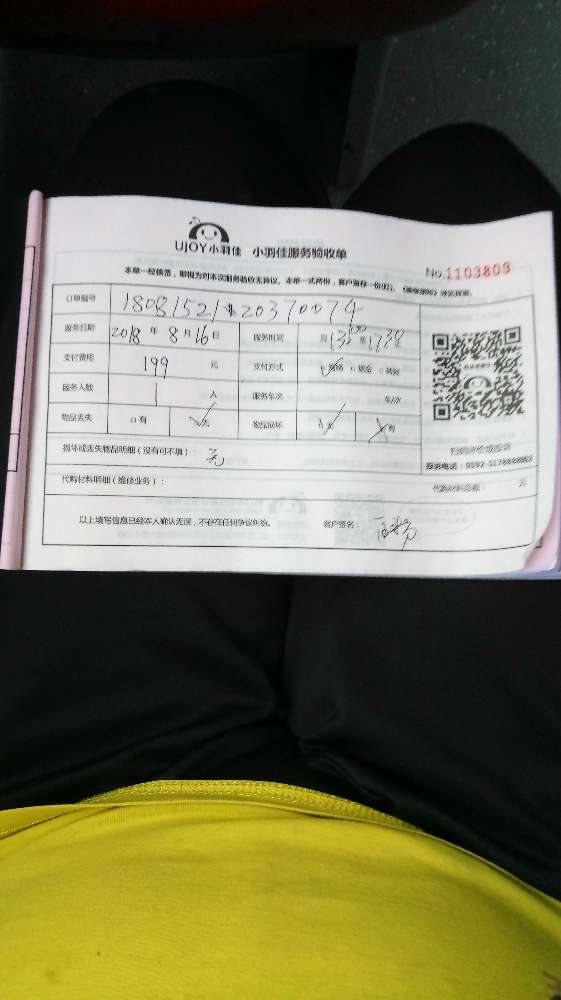 UJOY小羽佳 小羽佳服务验收单
No.1103809
本单一经签署，即视为对本次服务验收无异议。本单一式两份，客户留存一份(红)。
订单编号 1808152120370074
服务日期 2018年8月16日 服务时间 13:00至17:30
支付费用 199 元 支付方式 现金
服务人数 1 人 服务车次 车/次
物品丢失 □有 无 物品损坏 有
扫码评价或投诉
损坏或丢失物品明细（没有可不填）： 无
代购材料明细（维修业务）： 代购材料总额： 元
以上填写信息已经本人确认无误，不存在任何争议纠纷。 客户签名：